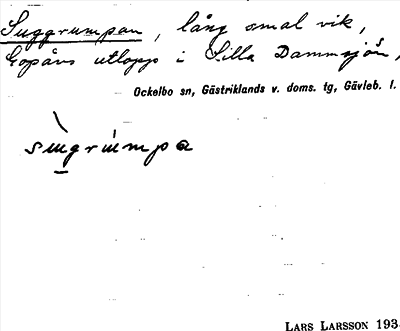 Suggrumpan, lång smal vik,
Gopåns utlopp i Lilla Dammsjön,
Ockelbo sn, Gästriklands v. doms. tg, Gävleb. l.
sùgrúmpa
LARS LARSSON 193